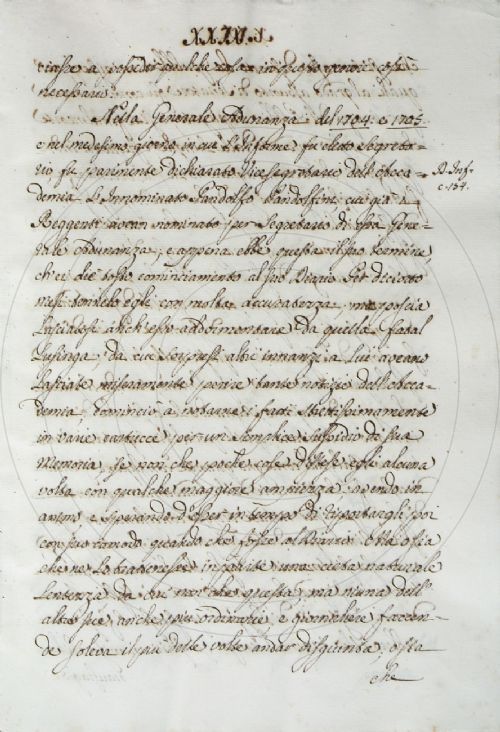 XXXIV.
necessario.
Nella Generale Adunanza del 1704. e 1705.
e nel medesimo giorno, in cui L'Informe fu eletto Segreta-
rio fu parimente dichiarato Vicesegretario dell'Acca-
demia L'Innominato Pandolfo Pandolfini, cui già i
Reggenti avean nominato per Segretario di essa Gene-
rale Adunanza, e appena ebbe questa il suo termine,
ch'ei diè tosto cominciamento al suo Diario. Per diciotto
mesi tennelo egli con molta accuratezza, ma poscia
Lasciandosi anch'esso addormentare da quella fatal
Lusinga, da cui sorpresi altri innanzi a Lui aveano
Lasciate miseramente perire tante notizie dell'Acca-
demia, cominciò a notarne i fatti strettissimamente
in varie cartucce per un semplice sussidio di sua
Memoria, se non che poche cose distese egli alcuna
volta con qualche maggiore ampiezza, avendo in
animo e sperando d'esser in tempo di riportargli poi
con suo comodo quando che fosse al Diario. Ma o sia
che ne lo trattenesse in parte una certa naturale
Lentezza da cui non che questa, ma niuna dell'
altre sue anche più ordinarie, e giornaliere faccen-
de soleva il più delle volte andar disgiunta, o sia
che